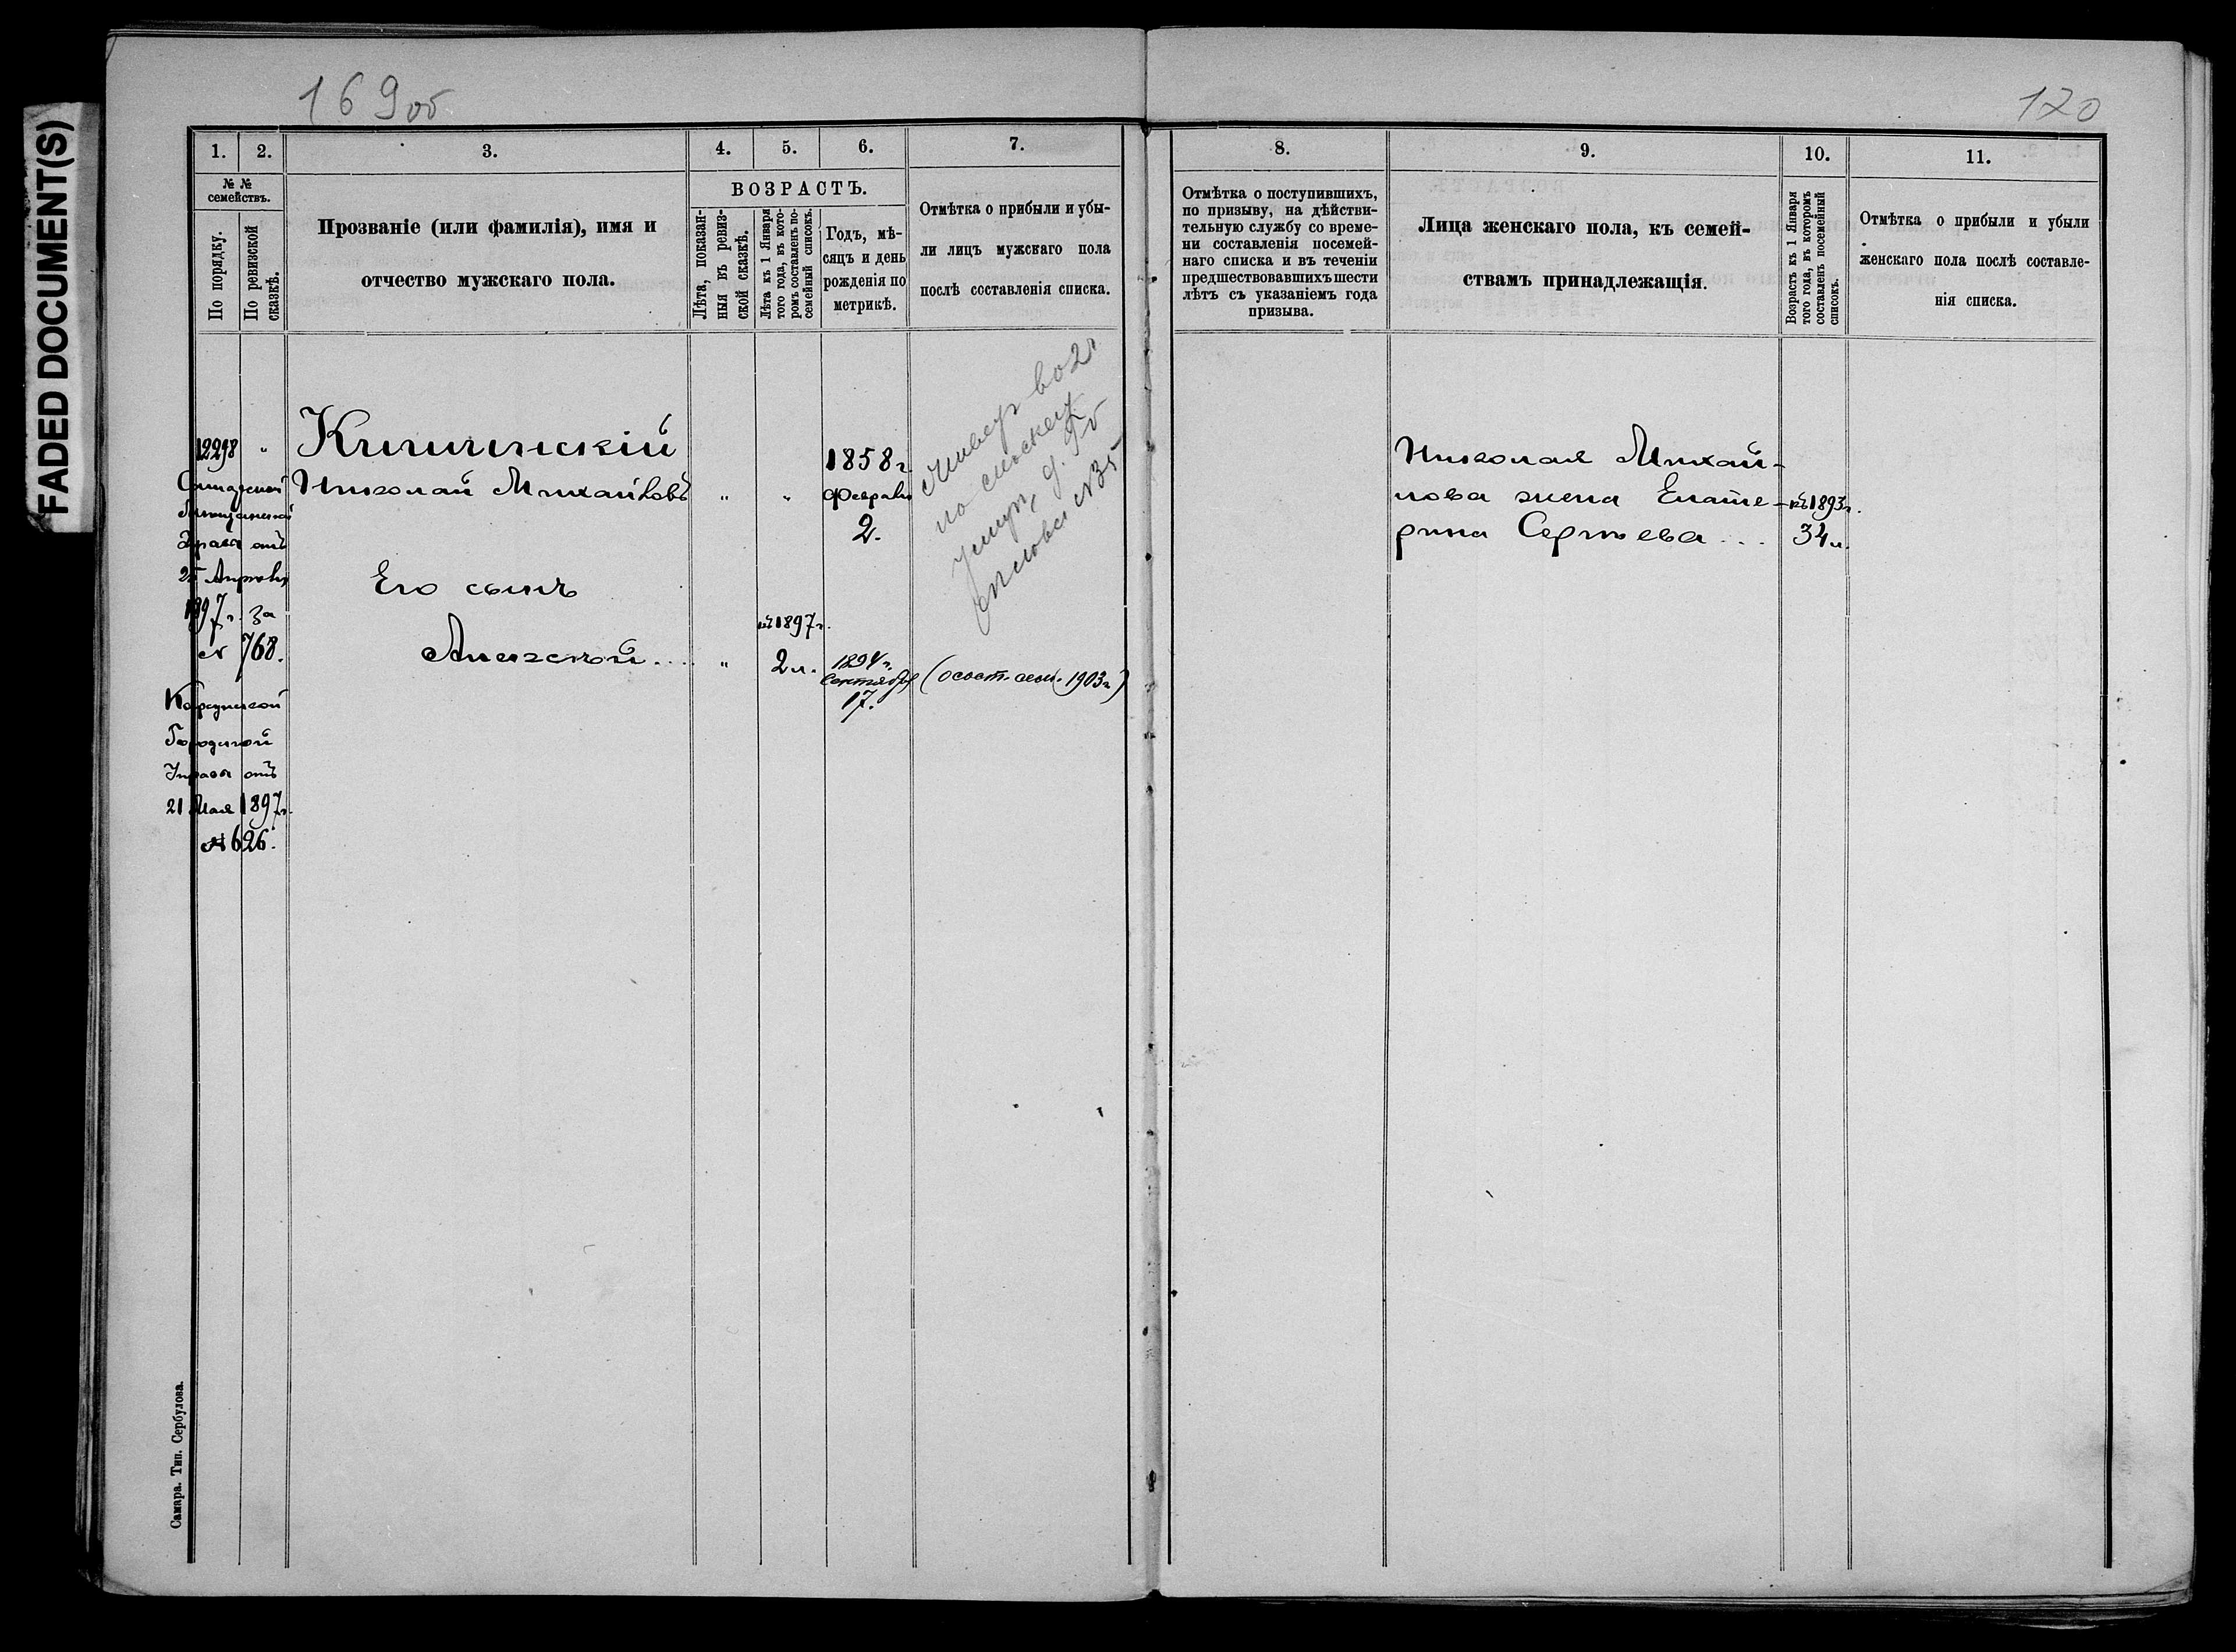 FADED DOCUMENT(S)
169 об
1.
2.
3.
4.
5.
6.
7.
№ №
семействъ.
По порядку.
По ревизской
сказкѣ.
Прозваніе (или фамилія), имя и
отчество мужскаго пола.
ВОЗРАСТЪ.
Лѣта, показан-
ныя въ ревиз-
ской сказкѣ.
Лѣта къ 1 Января
того года, въ кото-
ромъ составленъ по-
семейный списокъ.
Годъ, мѣ-
сяцъ и день
рожденія по
метрикѣ.
Отмѣтка о прибыли и убы-
ли лицъ мужскаго пола
послѣ составленія списка.
12298
"
Самарской
Мѣщанской
Управы отъ
25 Апрѣля
1897 г. за
№ 768.
Городской
Управы отъ
21 Мая 1897 г.
№ 626.
Николай Михайловъ
"
"
1858 г.
Февраля
2.
Его сынъ
Алексѣй....
"
къ 1897 г.
2 л.
1894 г.
Сентября
17.
во 2 ч
по
(сост. сем. 1903 г.)
Самара. Тип. Сербулова.
120
8.
9.
10.
11.
Отмѣтка о поступившихъ,
по призыву, на дѣйстви-
тельную службу со време-
ни составленія посемей-
наго списка и въ теченіи
предшествовавшихъ шести
лѣтъ съ указаніемъ года
призыва.
Лица женскаго пола, къ семей-
ствамъ принадлежащія.
Возрастъ къ 1 Января
того года, въ которомъ
составленъ посемейный
списокъ.
Отмѣтка о прибыли и убыли
женскаго пола послѣ составле-
нія списка.
Николая Михай-
лова жена Екате-
рина Сергѣева...
къ 1893 г.
34 л.